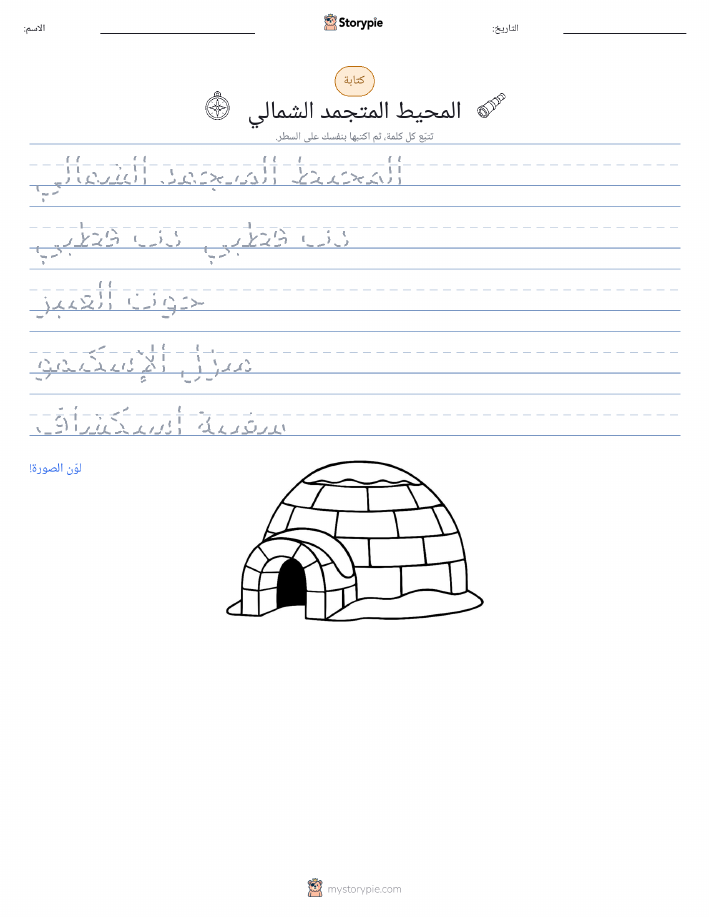 Storypie
الاسم:
التاريخ:
كتابة
المحيط المتجمد الشمالي
تتبّع كل كلمة، ثم اكتبها بنفسك على السطر.
المحيط المتجمد الشمالي
دب قطبي دب قطبي
حوت العنبر
منزل الإسكيمو
سفينة استكشاف
لوّن الصورة!
mystorypie.com